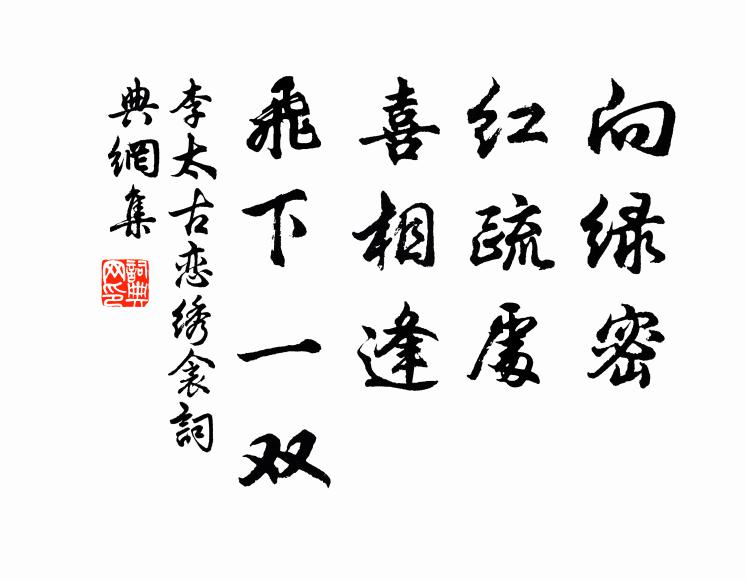 向绿密
红疏處
喜相逢
飛下一双
李太古恋绣衾詞
典網集
詞典网印